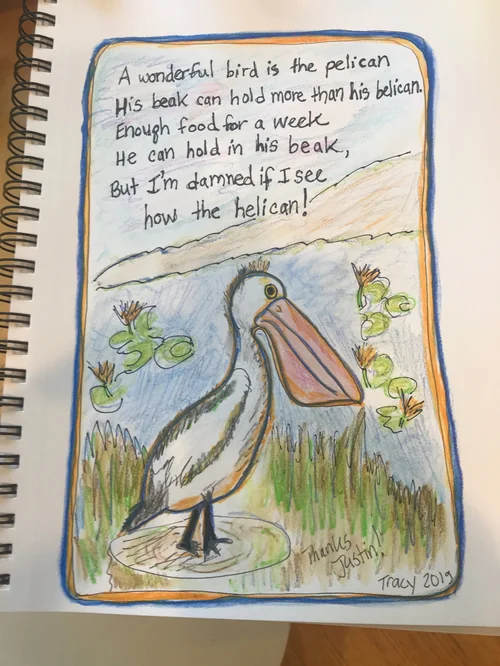 A wonderful bird is the pelican
His beak can hold more than his belican.
Enough food for a week
He can hold in his beak,
But I'm damned if I see
how the helican!
Thanks
Justin!
Tracy 2019